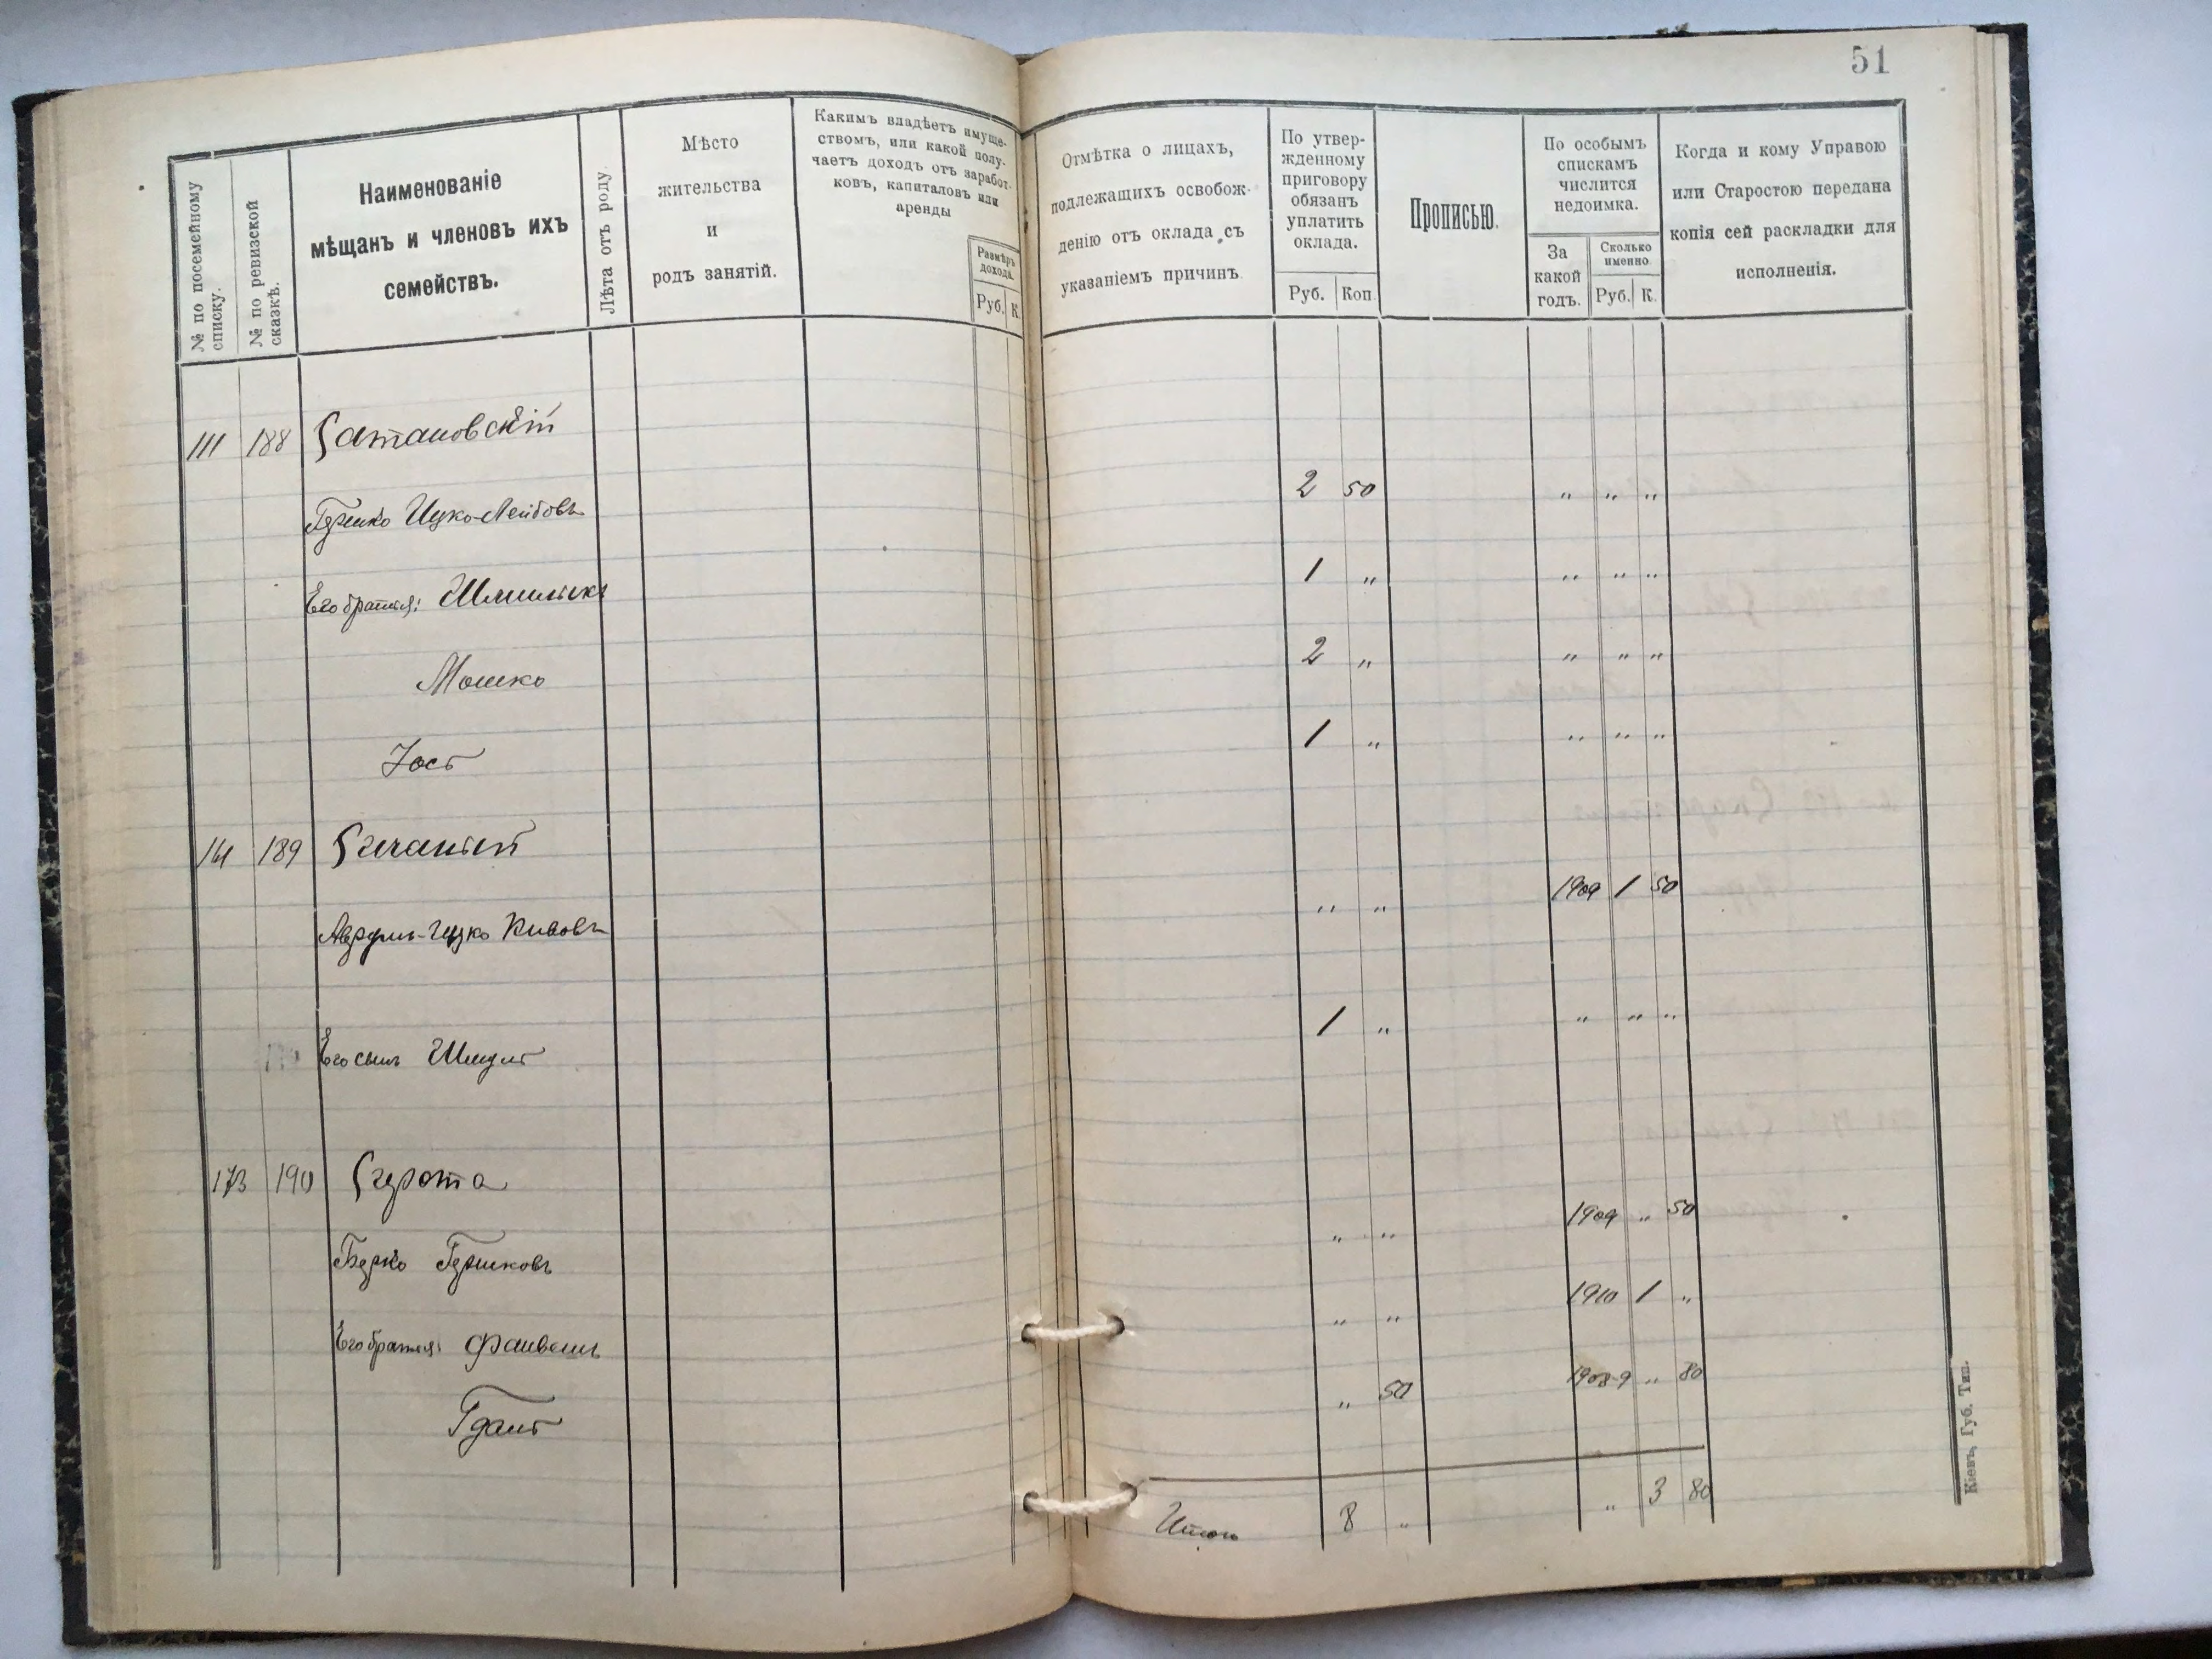 51
№ по посемейному списку.
№ по ревизской сказкѣ.
Наименованіе
мѣщанъ и членовъ ихъ
семействъ.
Лѣта отъ роду.
Мѣсто
жительства
и
родъ занятій.
Какимъ владѣетъ имуще-
ствомъ, или какой полу-
чаетъ доходъ отъ заработ-
ковъ, капиталовъ или
аренды
Размѣръ
дохода.
Руб. К.
Отмѣтка о лицахъ,
подлежащихъ освобож-
денію отъ оклада съ
указаніемъ причинъ.
По утвер-
жденному
приговору
обязанъ
уплатить
оклада.
Руб. Коп.
Прописью.
По особымъ
спискамъ
числится
недоимка.
За
какой
годъ.
Сколько
именно.
Руб. К.
Когда и кому Управою
или Старостою передана
копія сей раскладки для
исполненія.
111 188 Сатановскій
Гершко Ицко-Лейбовъ 2 50 " " "
Его братья: Шмиликъ 1 " " " "
Мошко 2 " " " "
Іосъ 1 " " " "
189
Аврумъ-Ицко Кивовъ " " 1909 1 50
Его сынъ Шмулъ 1 " " " "
173 190 Сирота
Берко Гершковъ " " 1909 " 50
Его братья: Файвешъ " " 1910 1 "
" 50 1908-9 " 80
Итого 8 " " 3 80
Кіевъ, Губ. Тип.